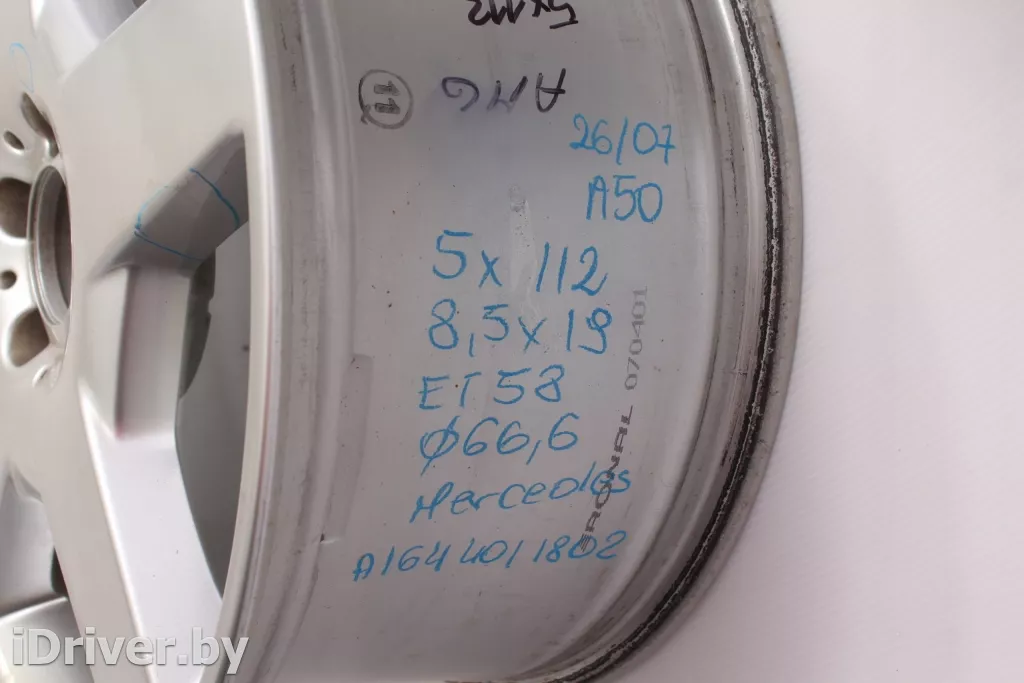 5x112
AMG
11
26/07
A50
5x112
8,5x19
ET58
Ø66,6
Mercedes
A1644011802
RONAL 070401
iDriver.by